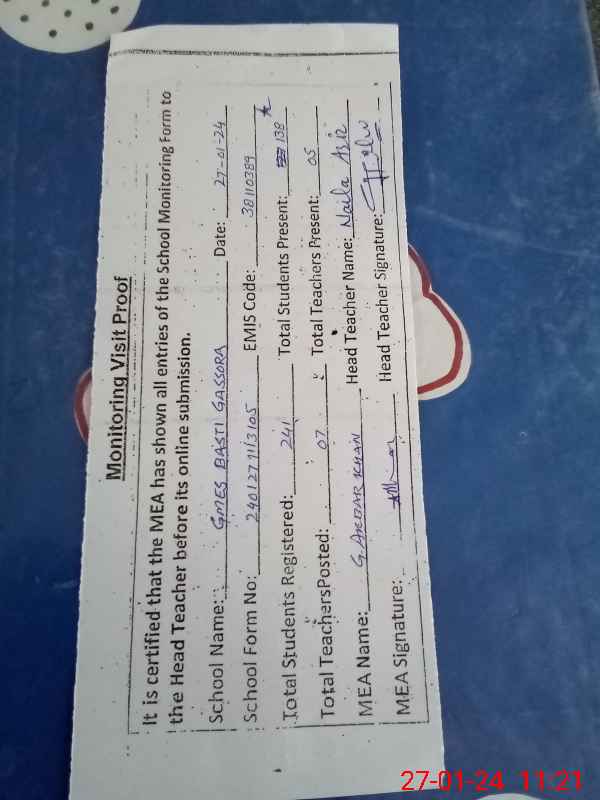 Monitoring Visit Proof
It is certified that the MEA has shown all entries of the School Monitoring Form to
the Head Teacher before its online submission.
School Name: GMES BASTI GASSORA Date: 27-01-24
School Form No: 2401271113105 EMIS Code: 38110389
Total Students Registered: 241 Total Students Present: 138
Total TeachersPosted: 07 Total Teachers Present: 05
MEA Name: G AKBAR KHAN Head Teacher Name: Naila Aziz
MEA Signature: Head Teacher Signature:
27-01-24 11:21